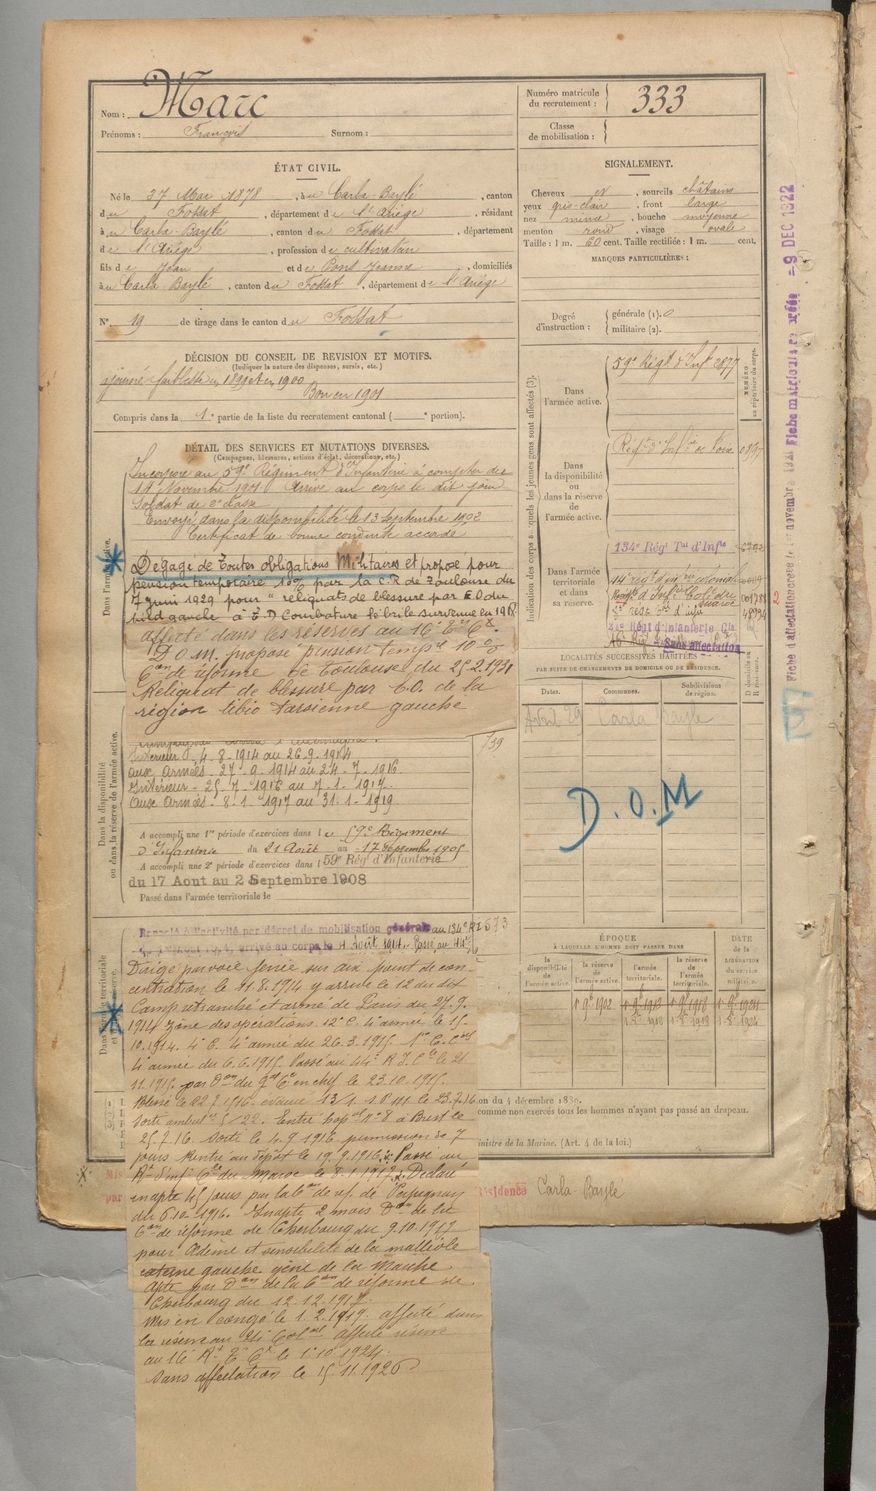 Nom : Marc
Prénoms : François Surnom :
Numéro matricule
du recrutement : 333
Classe
de mobilisation :
ÉTAT CIVIL.
Né le 27 Mai 1878, à u Carla-Baylé, canton
du Fossat, département de l'Ariège, résidant
à u Carla-Baylé, canton du Fossat, département
de l'Ariège, profession de cultivateur
fils de Jean et de Pons Jeanne, domiciliés
à u Carla-Baylé, canton du Fossat, département de l'Ariège
N° 19 de tirage dans le canton du Fossat
SIGNALEMENT.
Cheveux et, sourcils châtains
yeux gris-clair, front large
nez, bouche moyenne
menton rond, visage ovale
Taille : 1 m. 60 cent. Taille rectifiée : 1 m. cent.
MARQUES PARTICULIÈRES :
Degré
d'instruction : générale (1). 0
militaire (2).
DÉCISION DU CONSEIL DE REVISION ET MOTIFS.
(Indiquer la nature des dispenses, sursis, etc.)
ajourné faiblesse en 1899 et en 1900
Bon en 1901
Compris dans la 1e partie de la liste du recrutement cantonal ( e portion).
DÉTAIL DES SERVICES ET MUTATIONS DIVERSES.
(Campagnes, blessures, actions d'éclat, décorations, etc.)
Dans l'armée active.
Incorporé au 59e Régiment d'Infanterie à compter du
14 Novembre 1901 Arrivé au corps le dit jour
Soldat de 2e classe
Envoyé dans la disponibilité le 13 Septembre 1902
Certificat de bonne conduite accordé
Dégagé de toutes obligations Militaires et proposé pour
pension temporaire 10% par la C.R de Toulouse du
7 juin 1929 pour "reliquats de blessure par E.O du
pied gauche
affecté dans les réserves au 16e
D.O.M. proposé pension temp. 10 %
Con de réforme de Toulouse du 25.2.1931
Reliquat de blessure par E.O. de la
région tibio tarsienne gauche
Dans la disponibilité
ou dans la réserve de l'armée active.
Intérieur 4-8-1914 au 26-9-1914
aux Armées - 27-9-1914 au 24-7-1916
Intérieur - 25-7-1916 au 7-1-1917
aux Armées - 8-1-1917 au 31-1-1919
739
A accompli une 1re période d'exercices dans le 59e Régiment
d'Infanterie du 21 Août au 17 Septembre 1905
A accompli une 2e période d'exercices dans l 59e Régt d'Infanterie
du 17 Aout au 2 Septembre 1908
Passé dans l'armée territoriale le
Rappelé à l'activité par décret de mobilisation générale au 134e
arrivé au corps le 4 Août 1914. Passé au 44e
Dirigé par voie ferrée sur aix point de con-
centration le 11.8.1914 y arrivé le 12 du dit
Camp retranché et armé de Paris du 27.9.
1914 Zone des opérations 12e C. 4e armée le 15.
10.1914. 4e C. 4e armée du 26.3.1915
4e armée du 6.6.1915. Passé au 44e R.I.Cal le 21
11.1915 par Don du Gal Ct en chef le 23.10.1915.
Blessé le 22.7.1916 évacué 13/1 le 23.7.16
Sorti ambul. 5/22. Entré hopal n°8 à Brest le
25.7.16. Sorti le 4.9.1916 permission de 7
jours Rentré au dépôt le 19.9.1916. Passé au
Rt d'Inf. Cle du Maroc le 8.1.1917. Déclaré
inapte 45 jours par la Con de réf. de Perpignan
du 6.10.1916. Inapte 2 mois Don de la
Con de réforme de Cherbourg du 9.10.1917
pour Œdème et sensibilité de la malléole
externe gauche gêne de la marche
Apte par Don de la Con de réforme de
Cherbourg du 12.12.1917.
Mis en congé le 1.2.1919. affecté dans
la réserve au 24e Colal affecté réserve
au 16e Rt T. Cx le 1er.10.1924.
Sans affectation le 15.11.1926
Indication des corps auxquels les jeunes gens sont affectés (3).
Dans
l'armée active.
59e Régt d'Inf. 2877
Dans
la disponibilité
ou dans la réserve
de
l'armée active.
Régt d'Infie de Foix
Dans l'armée
territoriale et dans
sa réserve.
134e Régt Tal d'Infie
Sans affectation
NUMÉRO
au répertoire du corps.
LOCALITÉS SUCCESSIVES HABITÉES
PAR SUITE DE CHANGEMENTS DE DOMICILE OU DE RÉSIDENCE.
Dates. Communes. Subdivisions
de région. D. domicile ou
R. résidence.
Avril 29 Carla Bayle
D.O.M
ÉPOQUE
À LAQUELLE L'HOMME DOIT PASSER DANS
la
disponibilité
de
l'armée active. la réserve
de
l'armée active. l'armée
territoriale. la réserve
de
l'armée
territoriale.
DATE
de la
LIBÉRATION
du service
militaire.
1er 9bre 1902
on du 4 décembre 1830.
comme non exercés tous les hommes n'ayant pas passé au drapeau.
inistre de la Marine. (Art. 4 de la loi.)
résidence Carla Bayle
- 9 DEC 1922